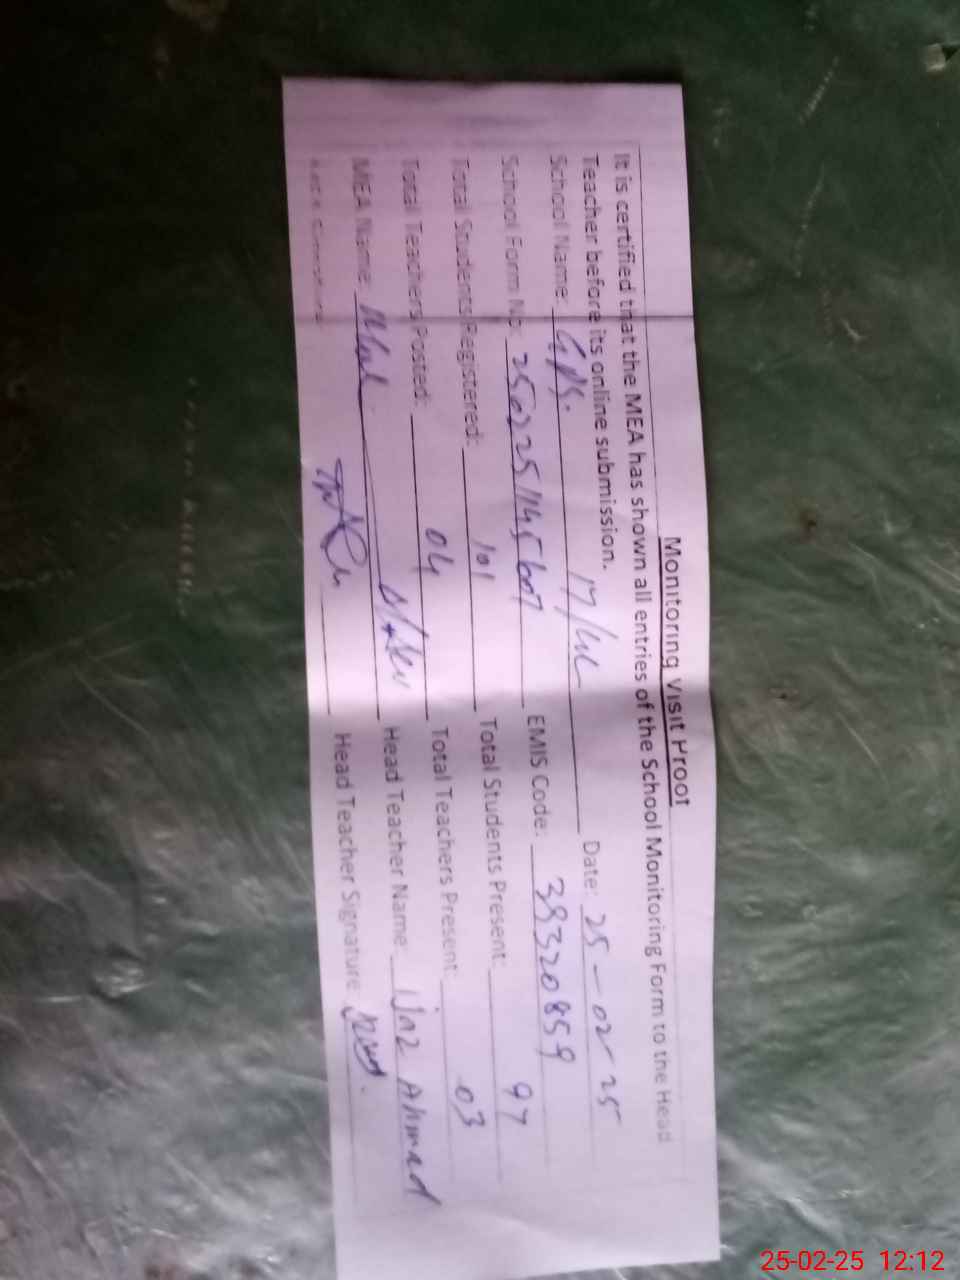 Monitoring Visit Proof
It is certified that the MEA has shown all entries of the School Monitoring Form to the Head
Teacher before its online submission.
School Name: GPS. 17/ Date: 25-02-25
School Form No: EMIS Code: 38320859
Total Students Registered: 101 Total Students Present: 97
Total Teachers Posted: 04 Total Teachers Present: 03
MEA Name: Head Teacher Name: Ijaz Ahmad
Head Teacher Signature
25-02-25 12:12